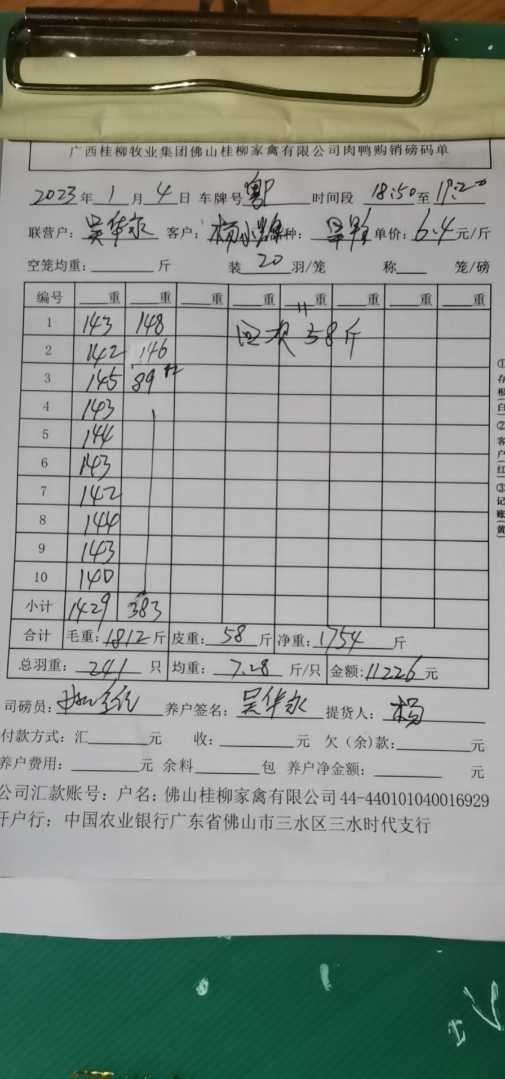 广西桂柳牧业集团佛山桂柳家禽有限公司肉鸭购销磅码单
2023年 1 月 4 日 车牌号 粤P 时间段 18:50 至 19:20
联营户: 吴华永 客户: 杨 种: 单价: 6.4 元/斤
空笼均重: 斤 装 20 羽/笼 称 笼/磅
编号 重 重 重 重 重 重 重 重
1 143 148 四次 58斤
2 142 146
3 145 89 12
4 143
5 144
6 143
7 142
8 144
9 143
10 140
小计 1429 383
合计 毛重: 1812 斤 皮重: 58 斤 净重: 1754 斤
总羽重: 241 只 均重: 7.28 斤/只 金额: 11226 元
司磅员: 养户签名: 吴华永 提货人: 杨
付款方式: 汇 元 收: 元 欠(余)款: 元
养户费用: 元 余料 包 养户净金额: 元
公司汇款账号: 户名: 佛山桂柳家禽有限公司 44-440101040016929
开户行: 中国农业银行广东省佛山市三水区三水时代支行
①存根(白)②客户(红)③记账(黄)